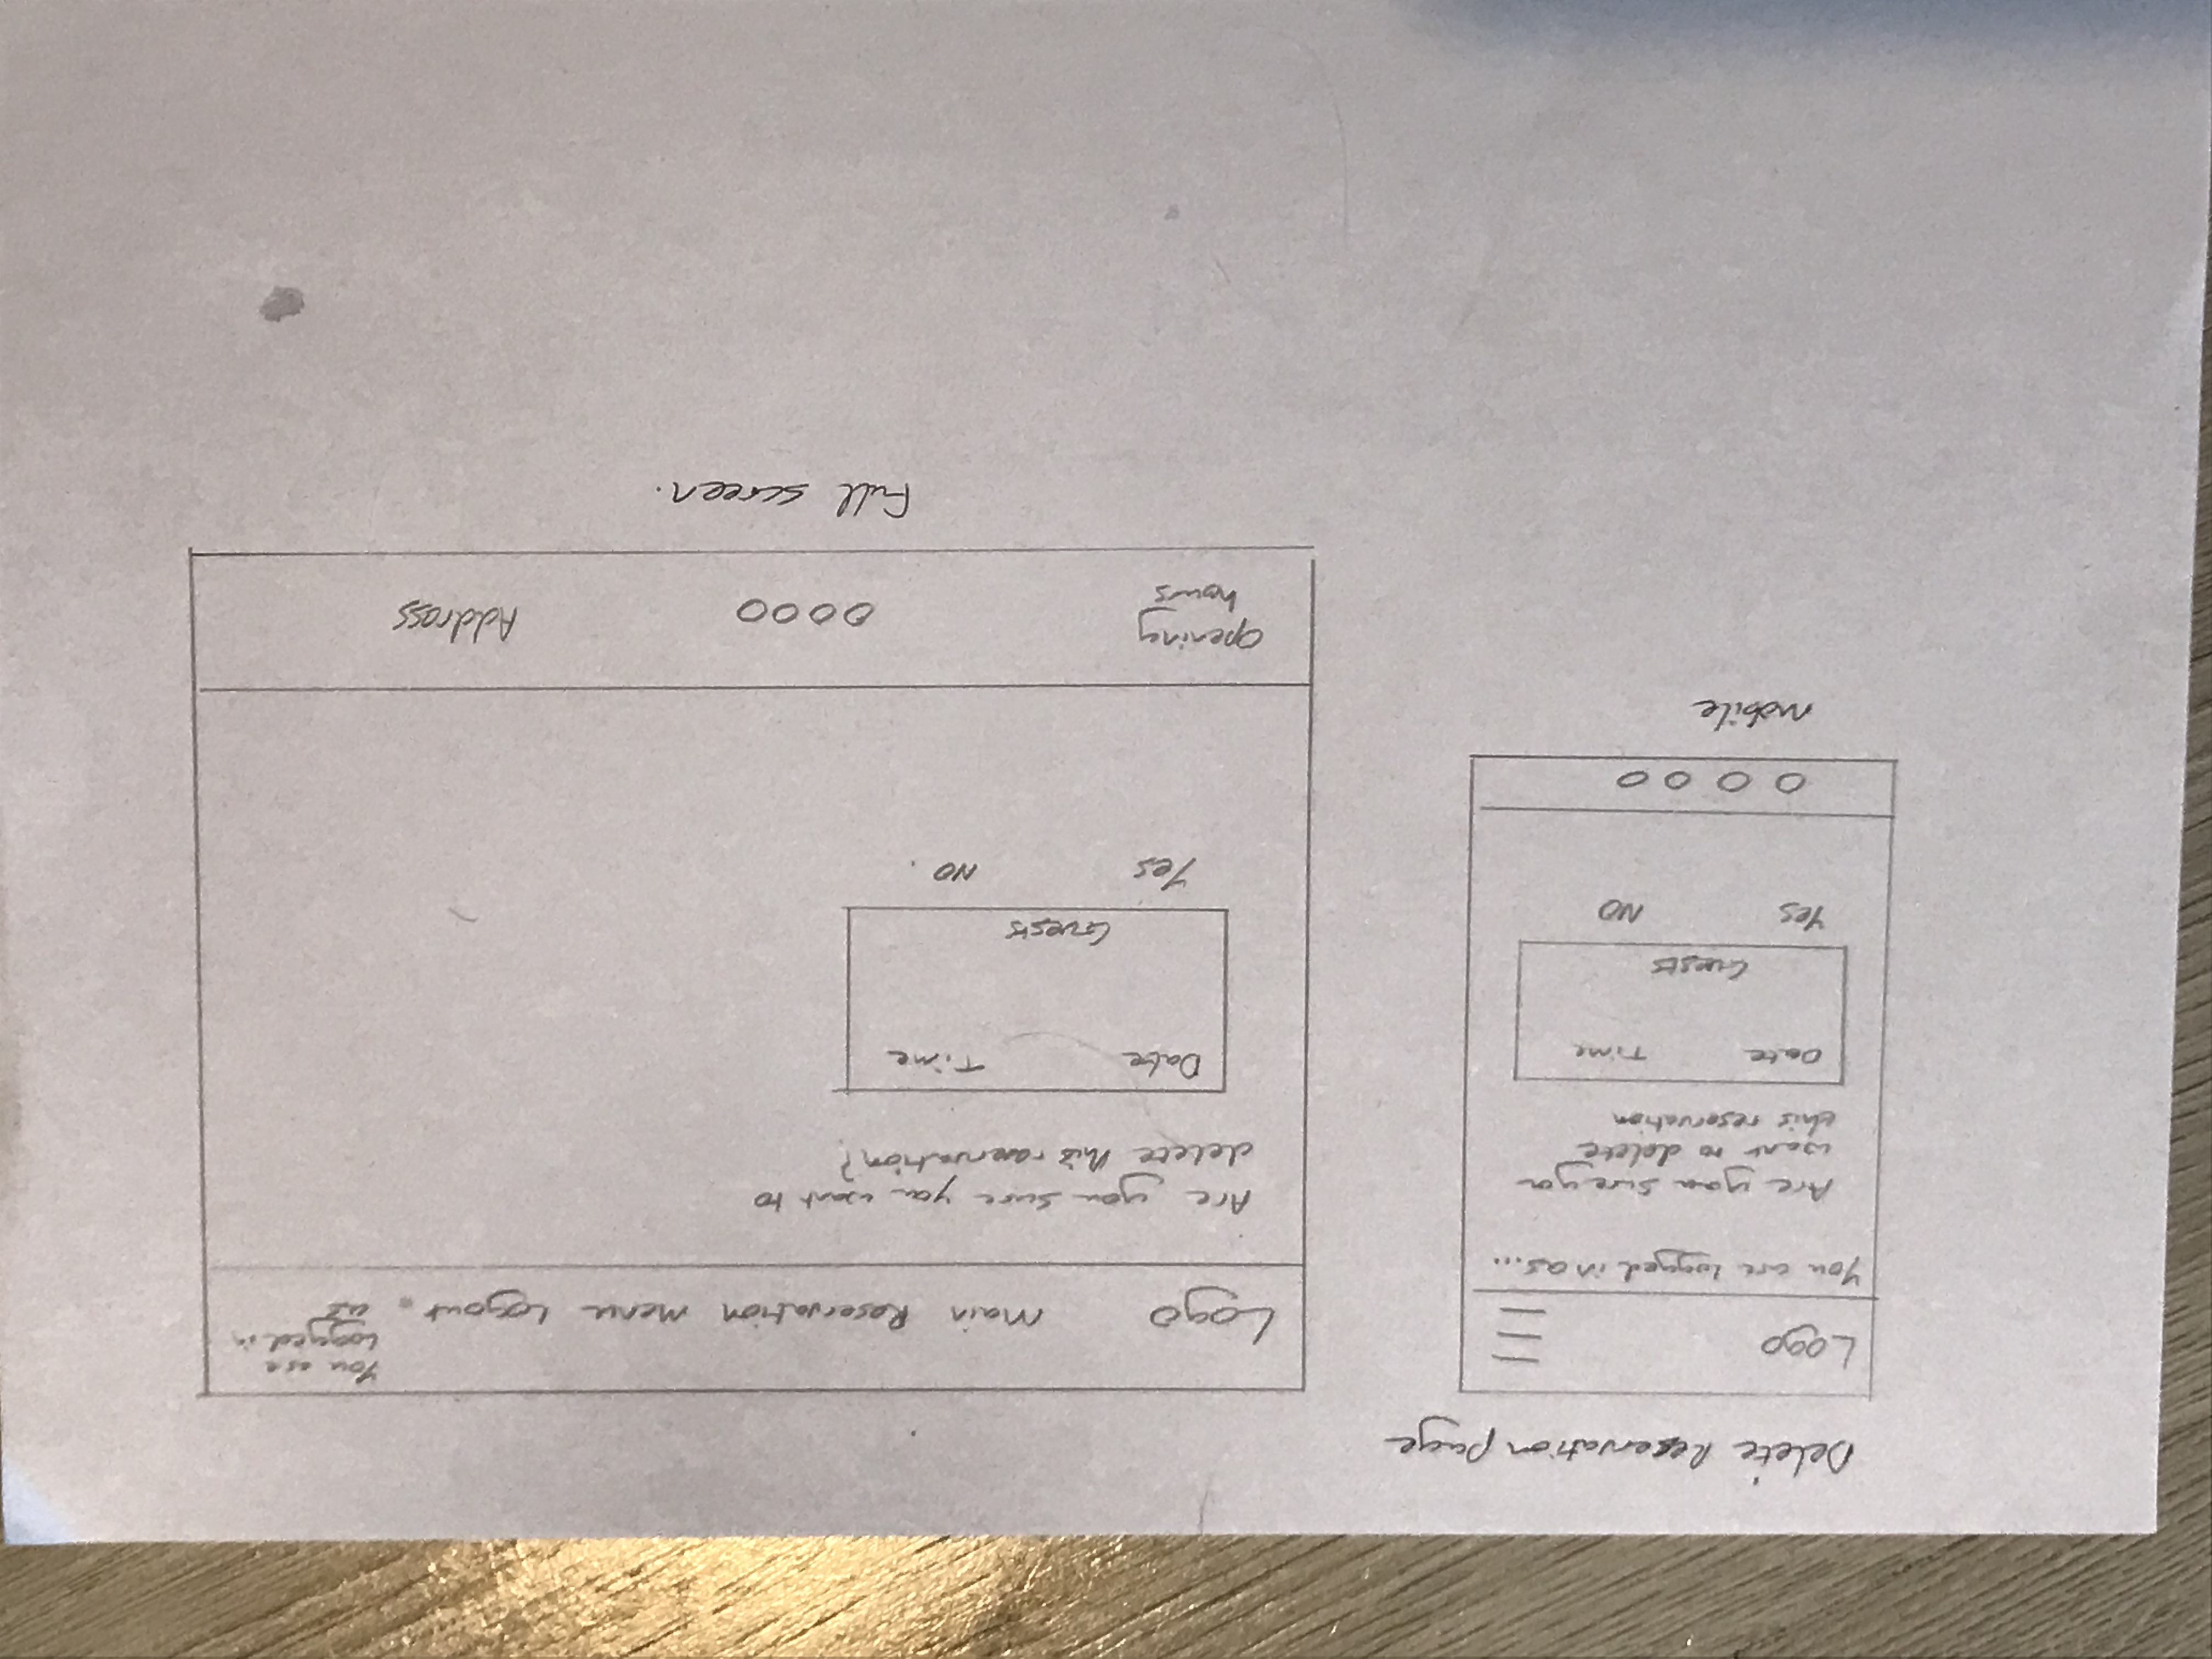 Delete Reservation page
Logo
You are logged in as...
Are you sure you
want to delete
this reservation
Date Time
Guests
Yes NO
0 0 0 0
mobile
Logo Main Reservation Menu Logout.
You are
Logged in
as
Are you sure you want to
delete this reservation?
Date Time
Guests
Yes NO.
opening
hours
0000
Address
Full screen.